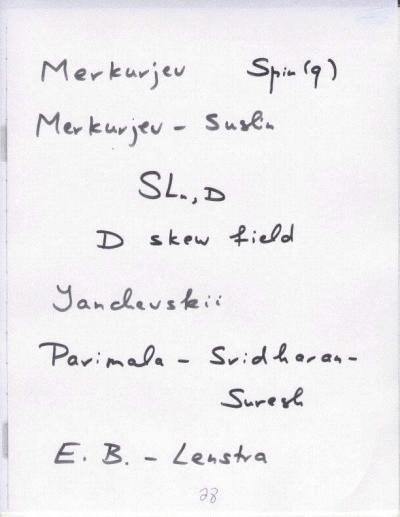 Merkurjev Spin(q)
Merkurjev - Suslin
SLn,D
D skew field
Yanchevskii
Parimala - Sridharan-
Suresh
E. B. - Lenstra
28